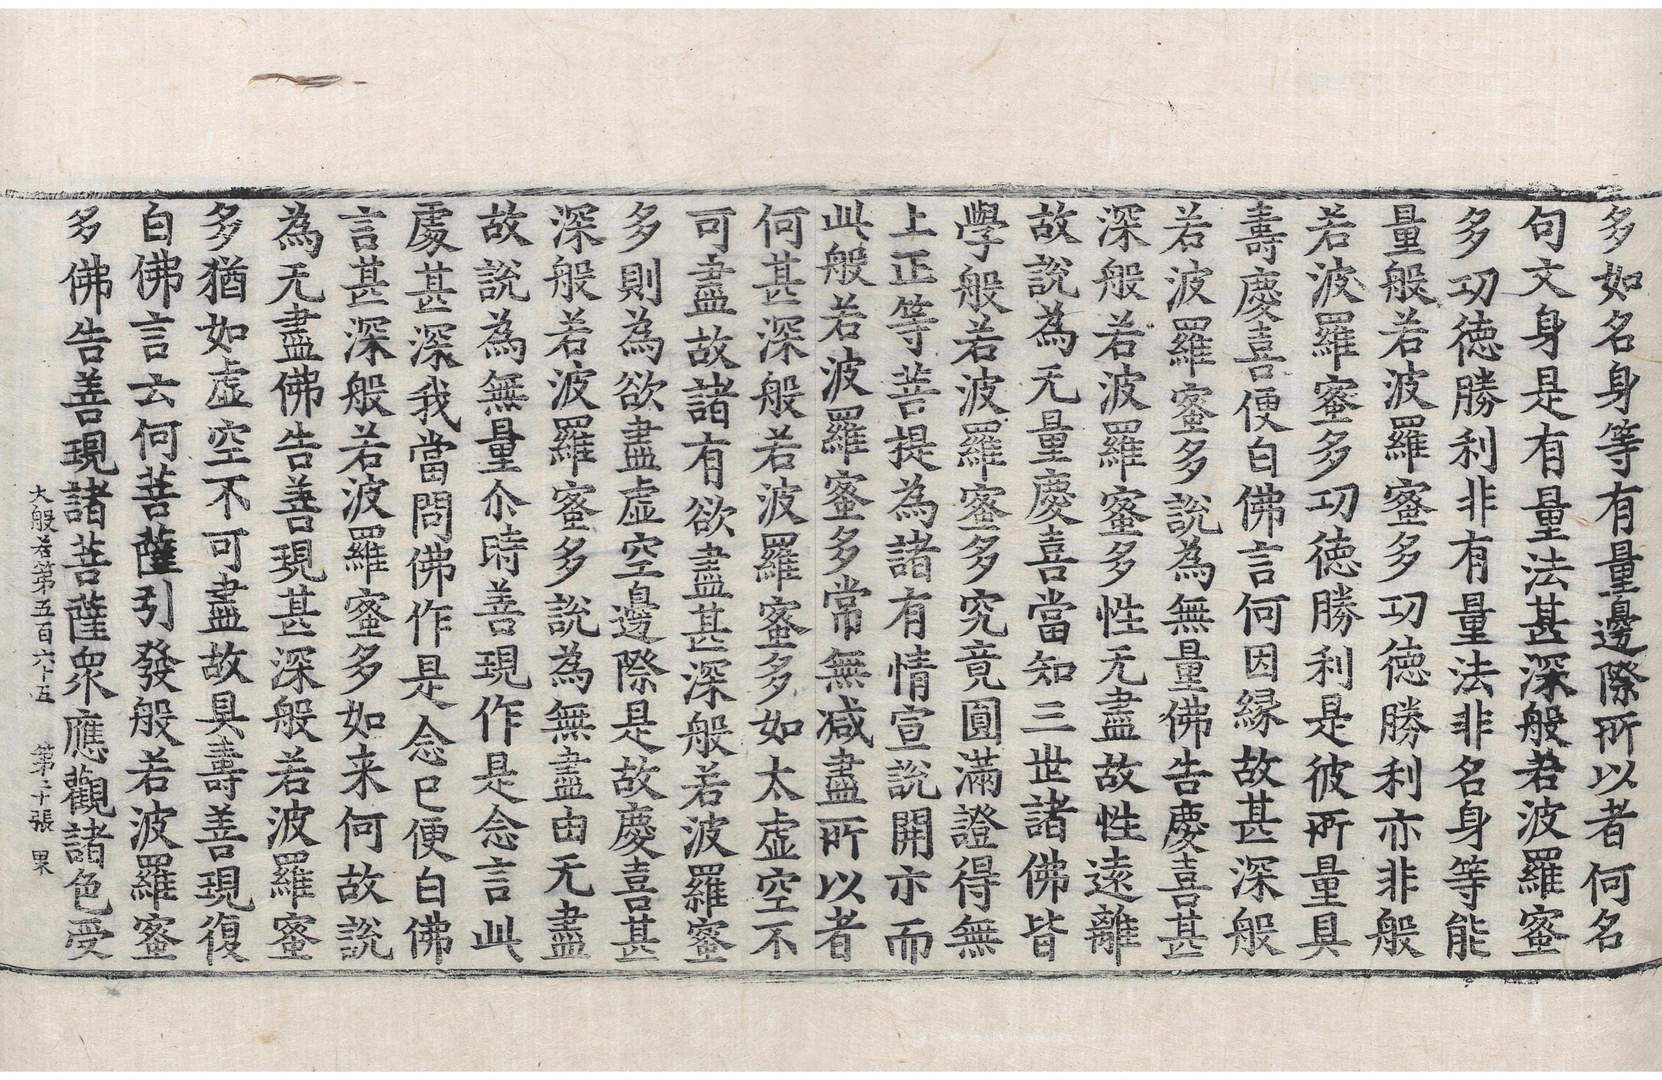 多如名身等有量邊際所以者何名
句文身是有量法甚深般若波羅蜜
多功德勝利非有量法非名身等能
量般若波羅蜜多功德勝利亦非般
若波羅蜜多功德勝利是彼所量具
壽慶喜便白佛言何因縁故甚深般
若波羅蜜多說為無量佛告慶喜甚
深般若波羅蜜多性无盡故性遠離
故說為无量慶喜當知三世諸佛皆
學般若波羅蜜多究竟圓滿證得無
上正等菩提為諸有情宣說開亦而
此般若波羅蜜多常無減盡所以者
何甚深般若波羅蜜多如太虛空不
可盡故諸有欲盡甚深般若波羅蜜
多則為欲盡虛空邊際是故慶喜甚
深般若波羅蜜多說為無盡由无盡
故說為無量尒時善現作是念言此
處甚深我當問佛作是念已便白佛
言甚深般若波羅蜜多如来何故說
為无盡佛告善現甚深般若波羅蜜
多猶如虛空不可盡故具壽善現復
白佛言云何菩薩引發般若波羅蜜
多佛告善現諸菩薩眾應觀諸色受
大般若第五百六十五 第二十張 果